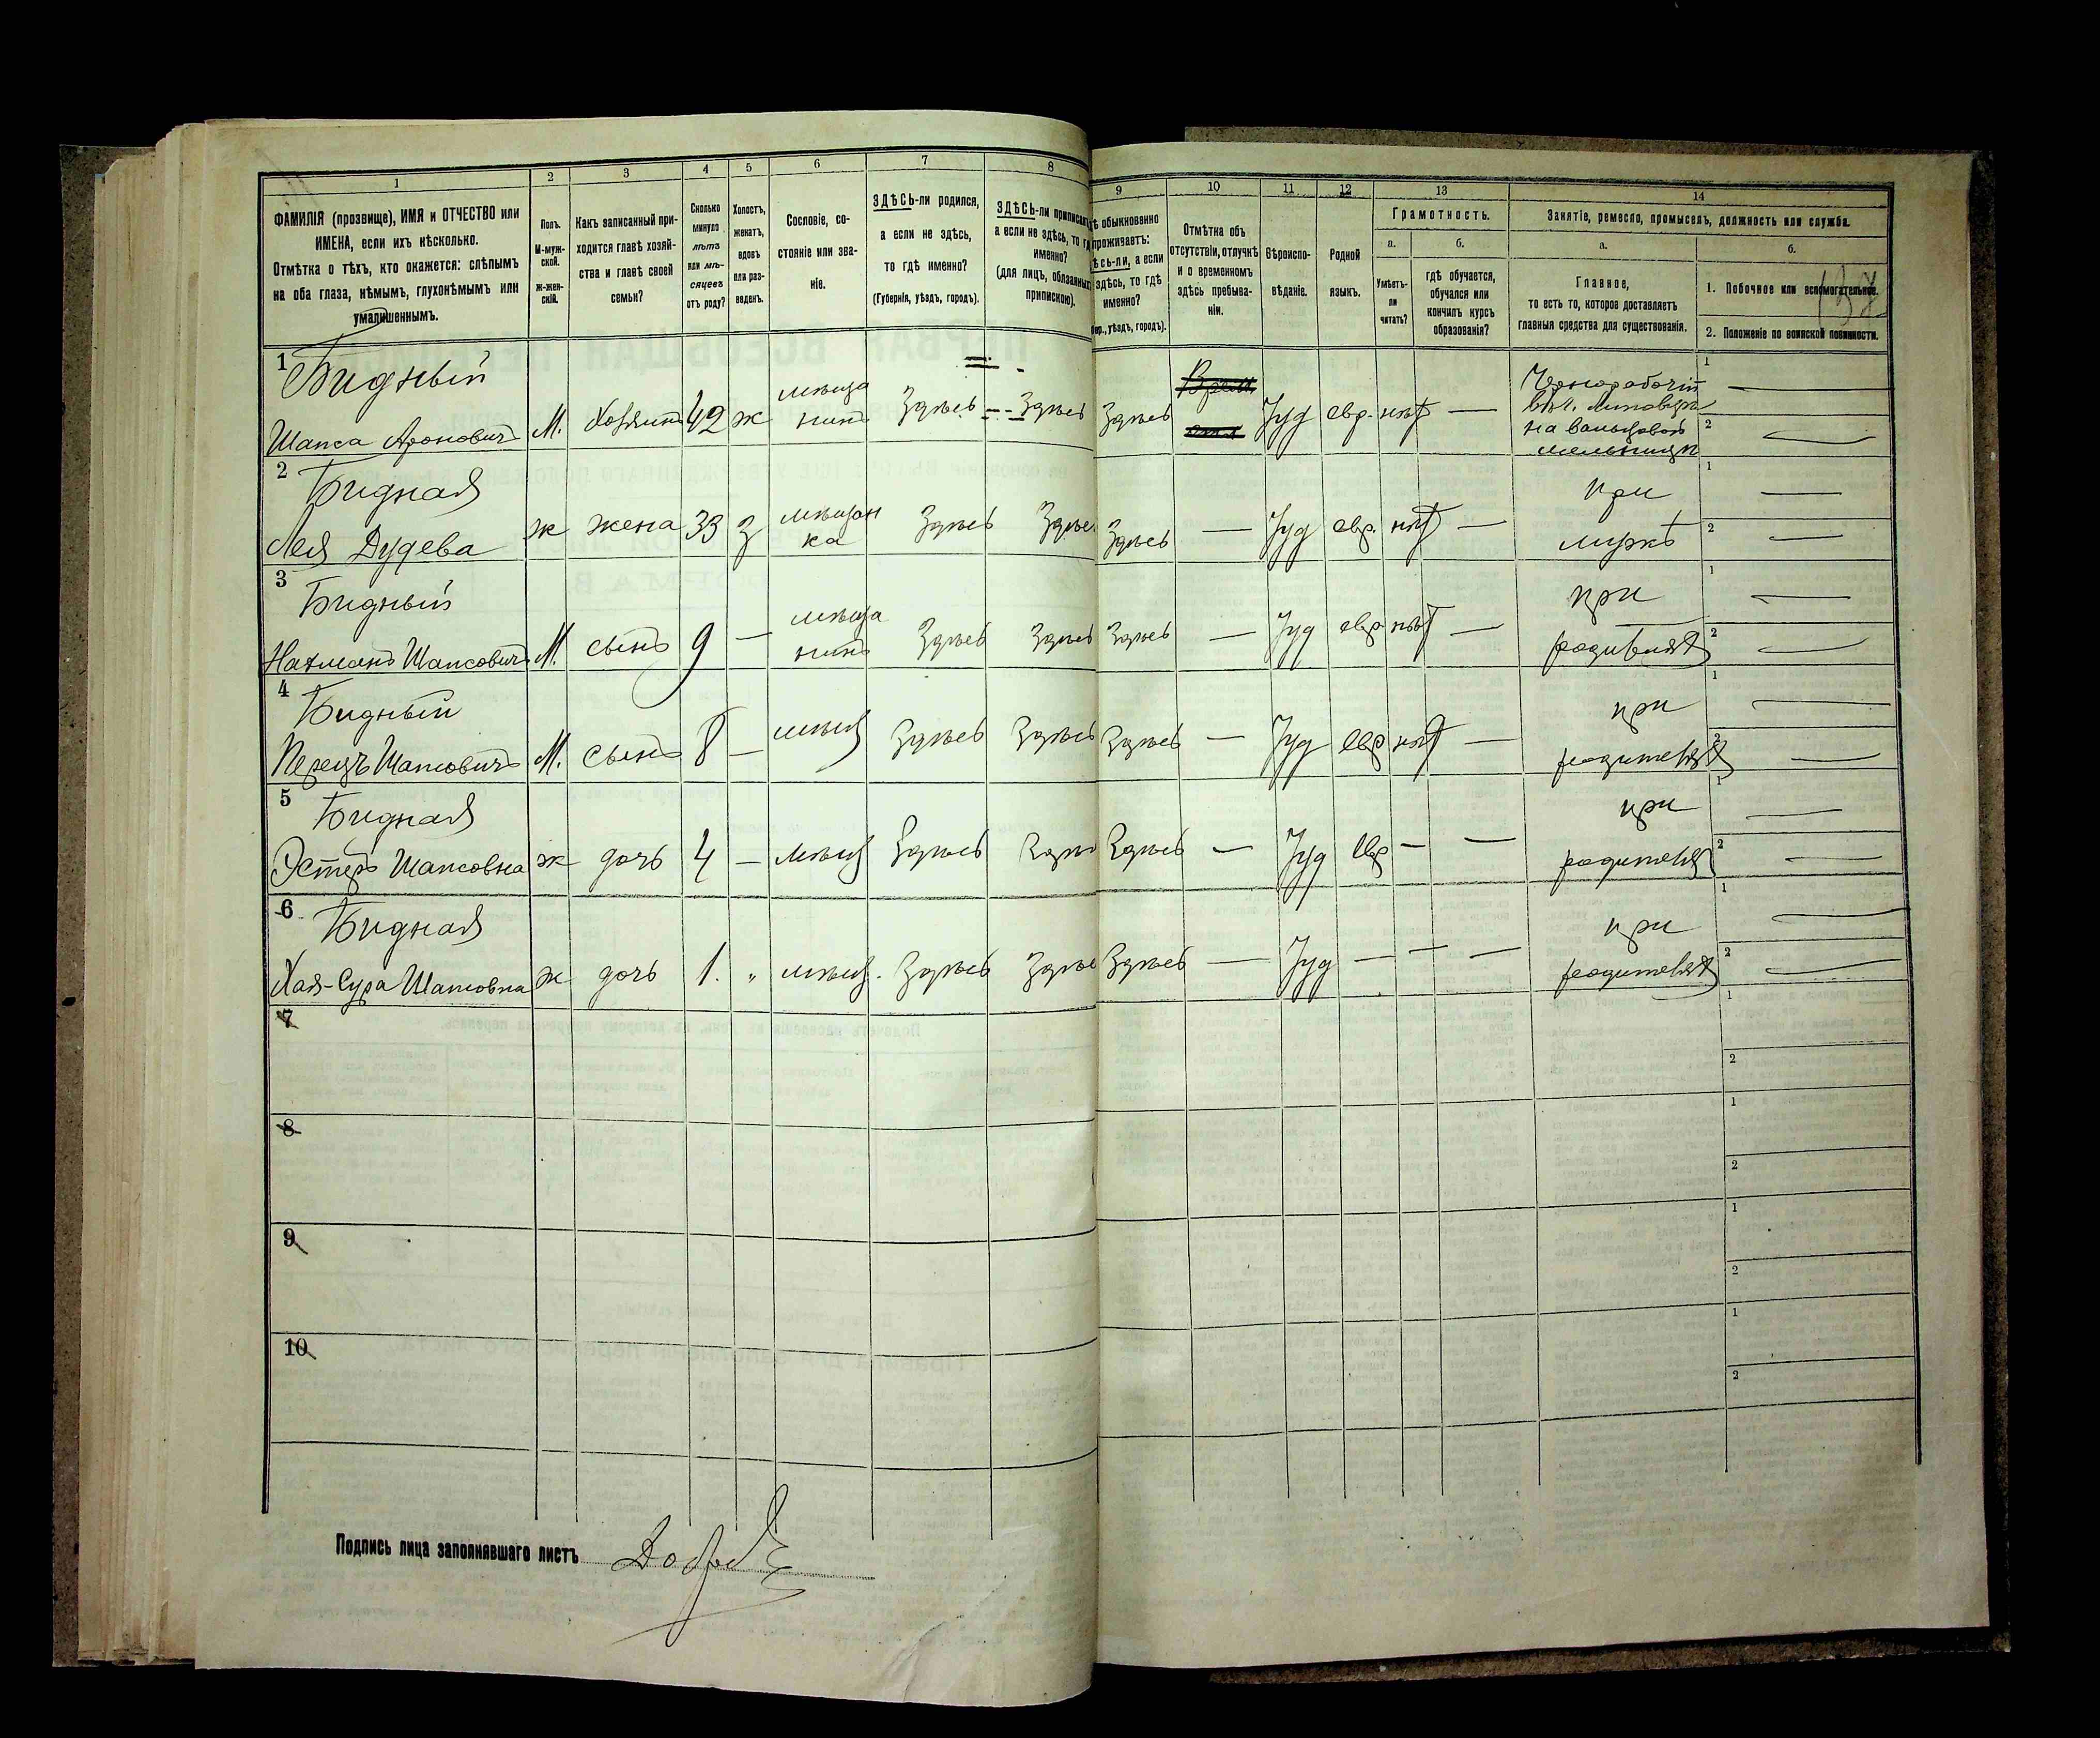 1 2 3 4 5 6 7 8 9 10 11 12 13 14
ФАМИЛІЯ (прозвище), ИМЯ и ОТЧЕСТВО или
ИМЕНА, если ихъ нѣсколько.
Отмѣтка о тѣхъ, кто окажется: слѣпымъ
на оба глаза, нѣмымъ, глухонѣмымъ или
умалишеннымъ.
Полъ.
М-муж-
ской.
ж-жен-
скій.
Какъ записанный при-
ходится главѣ хозяй-
ства и главѣ своей
семьи?
Сколько
минуло
лѣтъ
или мѣ-
сяцевъ
отъ роду?
Холостъ,
женатъ,
вдовъ
или раз-
веденъ.
Сословіе, со-
стояніе или зва-
ніе.
ЗДѢСЬ-ли родился,
а если не здѣсь,
то гдѣ именно?
(Губернія, уѣздъ, городъ).
ЗДѢСЬ-ли приписанъ,
а если не здѣсь, то гдѣ
именно?
(для лицъ, обязанныхъ
припискою).
обыкновенно
проживаетъ:
а если
здѣсь, то гдѣ
именно?
уѣздъ, городъ).
Отмѣтка объ
отсутствіи, отлучкѣ
и о временномъ
здѣсь пребыва-
ніи.
Вѣроиспо-
вѣданіе.
Родной
языкъ.
Грамотность.
а. б.
Умѣетъ-
ли
читать?
гдѣ обучается,
обучался или
кончилъ курсъ
образованія?
Занятіе, ремесло, промыселъ, должность или служба.
а. б.
Главное,
то есть то, которое доставляетъ
главныя средства для существованія.
1. Побочное или вспомогательное.
2. Положеніе по воинской повинности.
137
1 Бидный
Шапса Ароновичъ М. Хозяинъ 42 ж мѣща
нинъ Здѣсь Здѣсь Здѣсь Іуд евр. нѣт —
Чернорабочій
на вальцовой
мельницѣ
1 —
2 —
2 Бидная
Лея Дудева ж жена 33 з мѣщан
ка Здѣсь Здѣсь Здѣсь — Іуд евр. нѣт — при
мужѣ
1 —
2 —
3 Бидный
Нахманъ Шапсовичъ М. сынъ 9 — мѣща
нинъ Здѣсь Здѣсь Здѣсь — Іуд евр нѣт — при
родителях
1 —
2 —
4 Бидный
Перецъ Шапсовичъ М. сынъ 8 — мѣщ Здѣсь Здѣсь Здѣсь — Іуд евр нѣт — при
родителях
1 —
2 —
5 Бидная
Эстеръ Шапсовна ж дочь 4 — мѣщ Здѣсь Здѣсь Здѣсь — Іуд евр — — при
родителях
1 —
2 —
6 Бидная
Хая-Сура Шапсовна ж дочь 1. „ мѣщ. Здѣсь Здѣсь Здѣсь — Іуд — — — при
родителях
1 —
2 —
7
1
2
8
1
2
9
1
2
10
1
2
Подпись лица заполнявшаго листъ